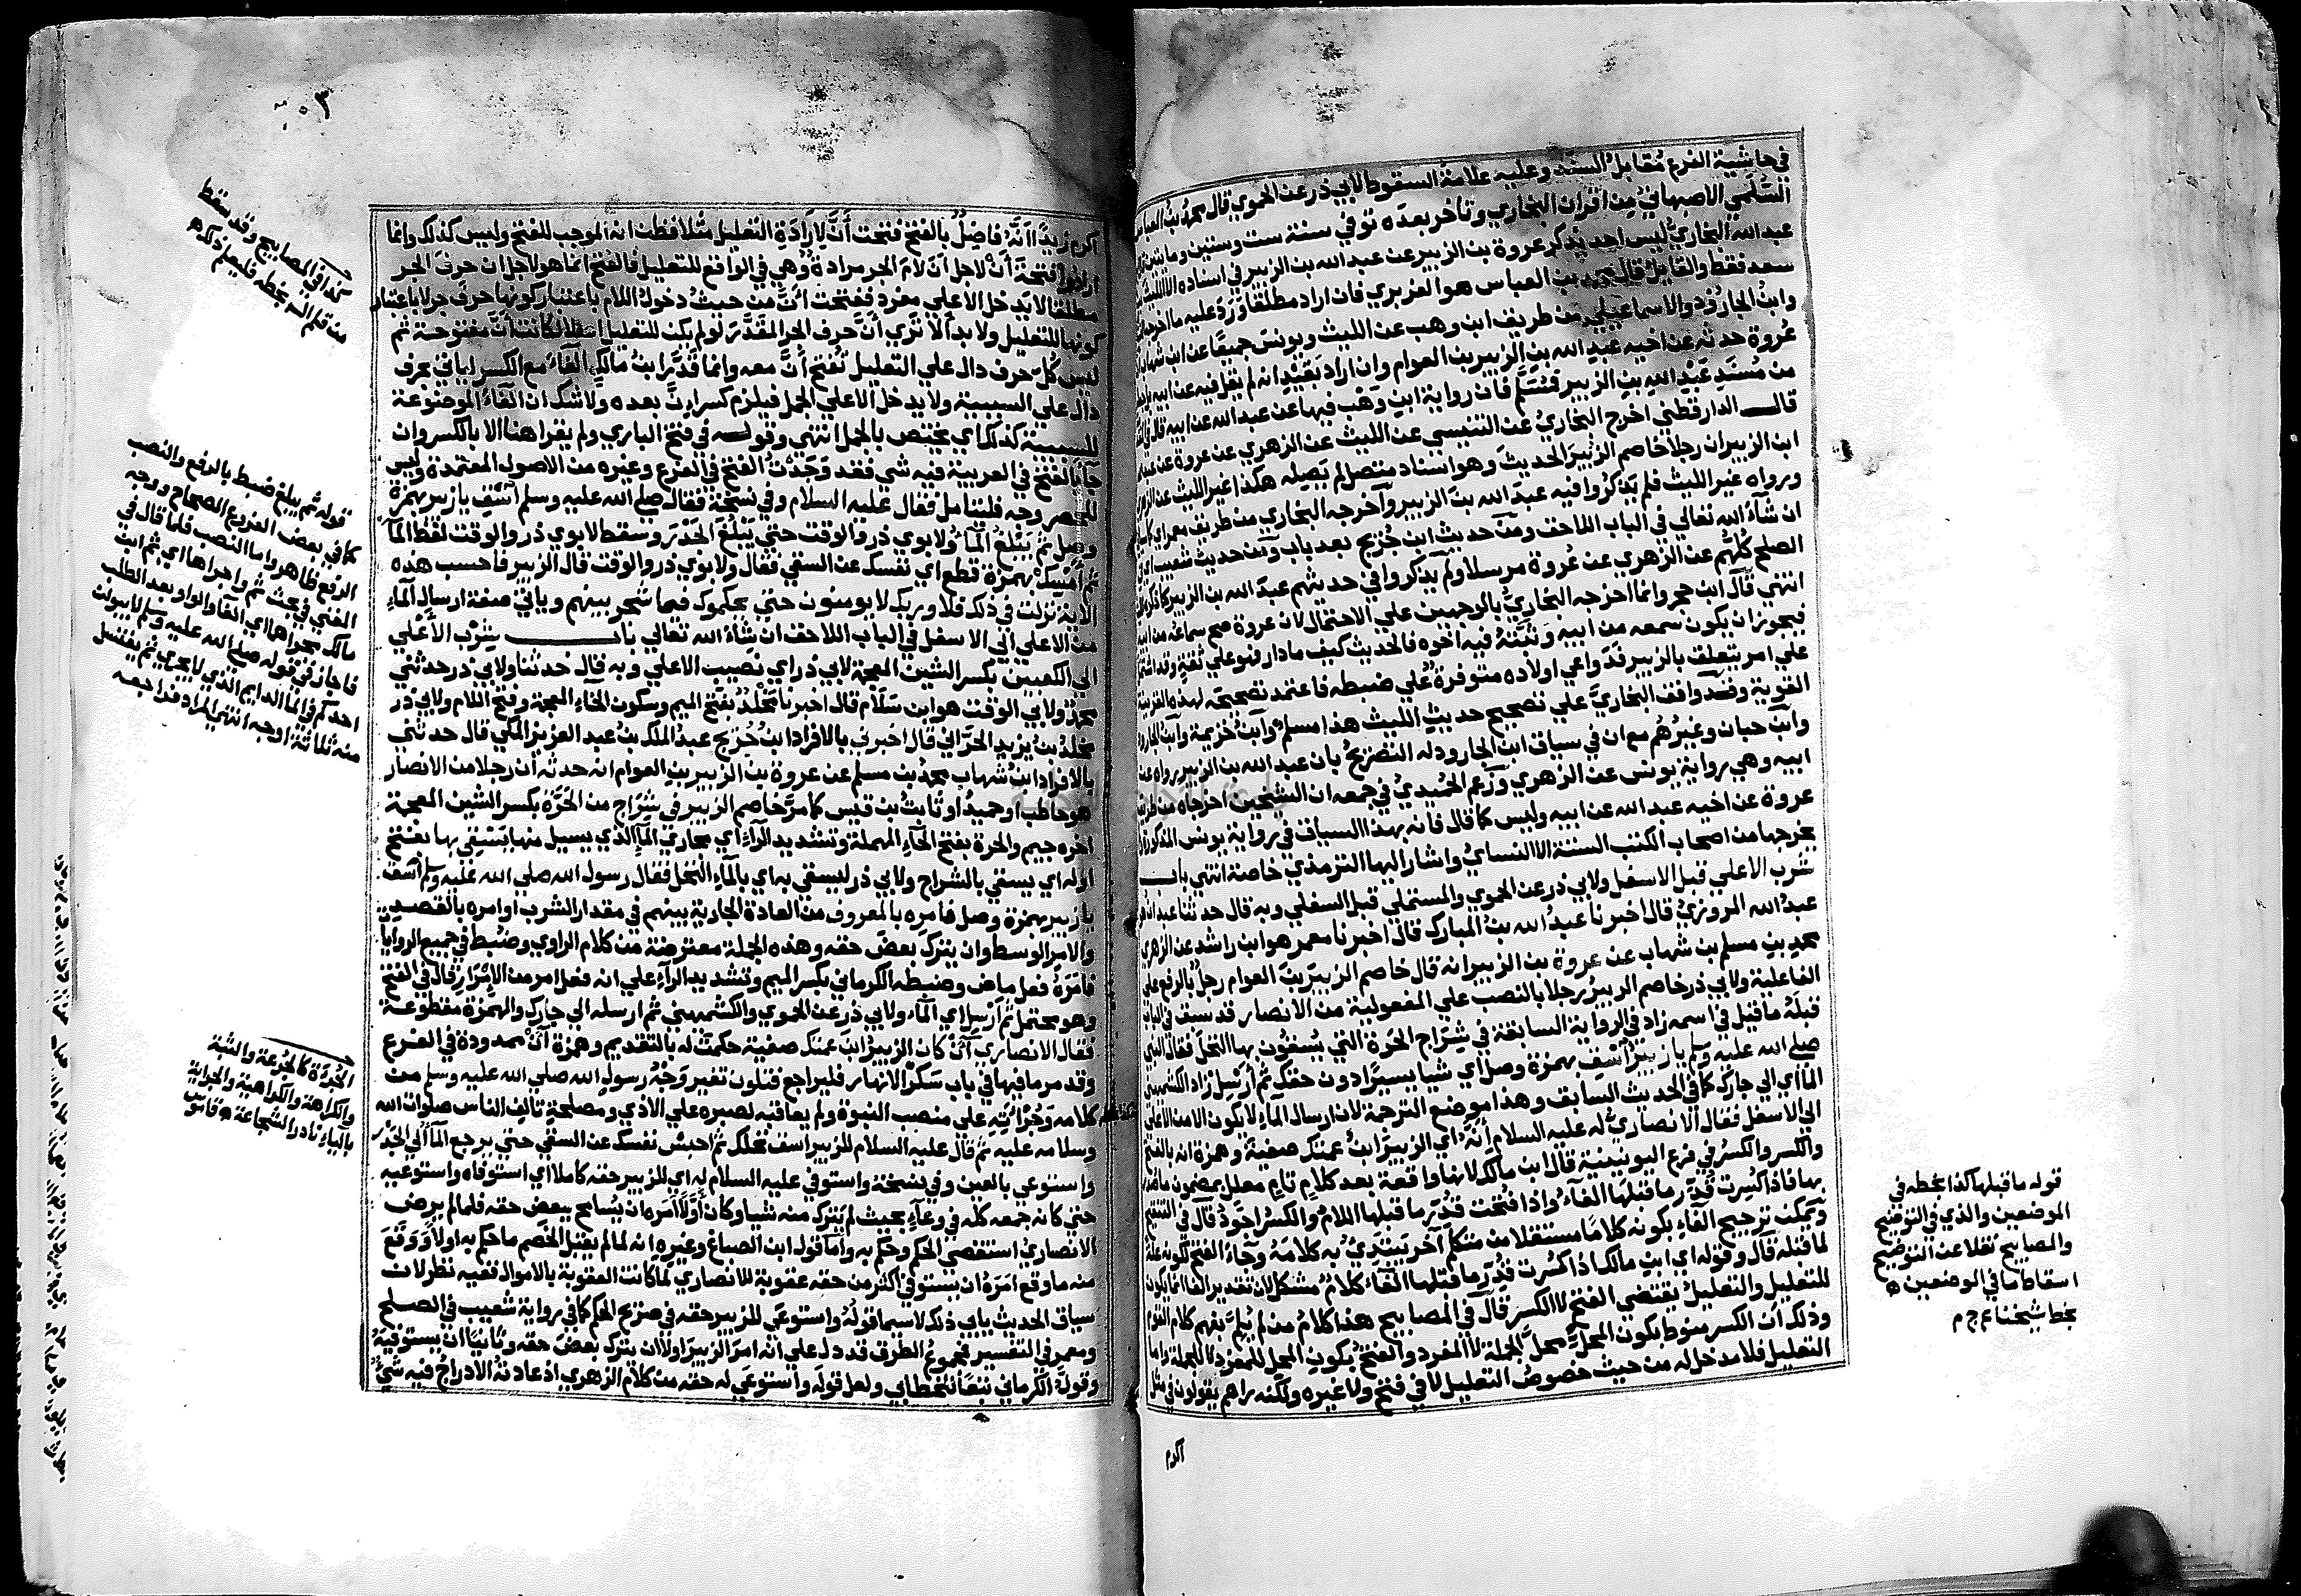 في حاشية الفرع مقابل السند وعليه علامة السقوط لابي ذر عن الحموي قال محمد بن العباس
السلمي الاصبهاني من اقران البخاري وتاخر بعده توفي سنة ست وستين ومائتين
عبد الله البخاري ليس احد يذكر عروة بن الزبير عن عبد الله بن الزبير في اسناده الا الليث
سعد فقط والقايل قال محمد بن العباس هو الفربري فان اراد مطلقا ورد عليه ما اخرجه
وابن الجارود والاسماعيلي من طريق ابن وهب عن الليث ويونس جميعا عن ابن شهاب
عروة حدثه عن اخيه عبد الله بن الزبير بن العوام وان اراد بقيد انه لم يقل فيه عن ابيه
من مسند عبد الله بن الزبير فمسلم فان رواية ابن وهب فيها عن عبد الله عن ابيه قال
قال الدارقطني اخرج البخاري عن التنيسي عن الليث عن الزهري عن عروة عن
ابن الزبير ان رجلا خاصم الزبير الحديث وهو اسناد متصل لم يصله هكذا غير الليث عن
ورواه غير الليث فلم يذكروا فيه عبد الله بن الزبير واخرجه البخاري من طريق معمر اي
ان شآء الله تعالي في الباب اللاحق ومن حديث ابن جريج بعد باب ومن حديث شعيب اي
الصلح كلهم عن الزهري عن عروة مرسلا ولم يذكروا في حديثهم عبد الله بن الزبير كما ذكره
انتهي قال ابن حجر وانما اخرجه البخاري بالوجهين علي الاحتمال لان عروة صح سماعه من ابيه
فيجوز ان يكون سمعه من ابيه وثبته فيه اخوه فالحديث كيف ما دار فهو علي ثقة وقد اشتمل
علي امر يتعلق بالزبير فدواعي اولاده متوفرة علي ضبطه فاعتمد تصحيحه لهذه القرينة
القوية وقد وافق البخاري علي تصحيح حديث الليث هذا مسلم وابن خزيمة وابن الجارود
وابن حبان وغيرهم مع ان في سياق ابن الجارود له التصريح بان عبد الله بن الزبير رواه عن
ابيه وهي رواية يونس عن الزهري وزعم الحميدي في جمعه ان الشيخين اخرجاه من طريق
عروة عن اخيه عبد الله عن ابيه وليس كما قال فانه بهذا السياق في رواية يونس المذكورة
يخرجها من اصحاب الكتب الستة الا النسائي واشار اليها الترمذي خاصة انتهي باب
شرب الاعلي قبل الاسفل ولابي ذر عن الحموي والمستملي قبل السفلي وبه قال حدثنا عبدان
عبد الله المروزي قال اخبرنا عبد الله بن المبارك قال اخبرنا معمر هو ابن راشد عن الزهري
محمد بن مسلم بن شهاب عن عروة بن الزبير انه قال خاصم الزبير بن العوام رجل بالرفع علي
الفاعلية ولابي ذر خاصم الزبير رجلا بالنصب علي المفعولية من الانصار قد سبق في الباب
قبله ما قيل في اسمه زاد في الرواية السابقة في شراج الحرة التي يسقون بها النخل فقال النبي
صلي الله عليه وسلم يا زبير اسق بهمزة وصل اي شيا يسيرا دون حقك ثم ارسل زاد الكشميهني
المآ اي الي جارك كما في الحديث السابق وهذا موضع الترجمة لان ارسال المآء لا يكون الا من الاعلي
الي الاسفل فقال الانصاري له عليه السلام انه اي الزبير ابن عمتك صفية وهمزة انه بالفتح
والكسر والكسر في فرع اليونينية قال ابن مالك لانها واقعة بعد كلام تام معلل بمضمون ما صدر
بها فاذا كسرت قدر ما قبلها الفآء واذا فتحت قدر ما قبلها اللام والكسر اجود قال في التنقيح
ويمكن ترجيح الفآء بكونه كلاما مستقلا من متكلم آخر يبتدي به كلامه وجآء الفتح لكونه علة
لما قبله قال وقوله اي ابن مالك اذا كسرت قدر ما قبلها الفآء كلام مشكل لان تقدير الفا انما يكون
للتعليل والتعليل يقتضي الفتح لا الكسر قال في المصابيح هذا كلام من لم يلم بفهم كلام القوم
وذلك ان الكسر منوط بكون المحل محل الجملة لا المفرد والفتح بكون المحل للمفرد لا للجملة واما
التعليل فلا مدخل له من حيث خصوص التعليل لا في فتح ولا غيره ولكنه راهم يقولون في مثل
اكرم
قوله ما قبلها كذا بخطه في
الموضعين والذي في التوضيح
والمصابيح نقلا عن التوضيح
اسقاط ما في الموضعين ه
بخط شيخنا ع ج م
اكرم زيدا انه فاضل بالفتح فتحت ان لارادة التعليل مثلا فظن انه الموجب للفتح وليس كذلك وانما
ارادوا فتحت ان لاجل ان لام الجر مرادة وهي في الواقع للتعليل فالفتح انما هو لاجل ان حرف الجر
مطلقا لا يدخل الا علي مفرد ففتحت ان من حيث دخول اللام باعتبار كونها حرف جر لا باعتبار
كونها للتعليل ولا بد الا تري ان حرف الجر المقدر لو لم يكن للتعليل اصلا لكانت ان مفتوحة ثم
ليس كل حرف دال علي التعليل تفتح ان معه وانما قدر ابن مالك الفآء مع الكسر لياتي بحرف
دال علي السببية ولا يدخل الا علي الجمل فيلزم كسر ان بعده ولا شك ان الفآء الموضوعة
للسببية كذلك اي يختص بالجمل انتهي وقوله في فتح الباري ولم يقرا هنا الا بالكسر وان
جاز الفتح في العربية فيه شي فقد وجدت الفتح في الفرع وغيره من الاصول المعتمدة وليس
للحصر وجه فليتامل فقال عليه السلام وفي نسخة فقال صلي الله عليه وسلم اسق يا زبير بهمزة
وصل ثم يبلغ المآء ولابوي ذر والوقت حتي يبلغ الجدر وسقط لابوي ذر والوقت لفظ المآ
ثم امسك بهمزة قطع اي نفسك عن السقي فقال ولابوي ذر والوقت قال الزبير فاحسب هذه
الاية نزلت في ذلك فلا وربك لا يومنون حتي يحكموك فيما شجر بينهم وياتي صفة ارسال المآء
من الاعلي الي الاسفل في الباب اللاحق ان شاء الله تعالي باب شرب الاعلي
الي الكعبين بكسر الشين المعجمة لابي ذر اي نصيب الاعلي وبه قال حدثنا ولابي ذر حدثني
محمد ولابي الوقت هو ابن سلام قال اخبرنا مخلد بفتح الميم وسكون الخآء المعجمة وفتح اللام ولابي ذر
مخلد بن يزيد الحراني قال اخبرني بالافراد ابن جريج عبد الملك بن عبد العزيز المكي قال حدثني
بالافراد ابن شهاب محمد بن مسلم عن عروة بن الزبير بن العوام انه حدثه ان رجلا من الانصار
هو حاطب او حميد او ثابت بن قيس كما مر خاصم الزبير في شراج من الحرة بكسر الشين المعجمة
اخره جيم والحرة بفتح الحآء المهملة وتشديد الرآء اي مجاري المآ الذي يسيل منها يستقي بها بفتح
اوله اي يستقي بالشراج ولابي ذر ليستقي به اي بالمآء النخل فقال رسول الله صلي الله عليه وسلم اسق
يا زبير بهمزة وصل فامره بالمعروف من العادة الجارية بينهم في مقدار الشرب او امره بالقصد
والامر الوسط وان يترك بعض حقه وهذه الجملة معترضة من كلام الراوي وضبط في جميع الروايات
فامره فعل ماض وضبطه الكرماني بكسر الميم وتشديد الرآء علي انه فعل امر من الامرار قال في الفتح
وهو محتمل ثم ارسل اي المآء ولابي ذر عن الحموي والكشميهني ثم ارسله الي جارك والهمزة مقطوعة
فقال الانصاري آن كان الزبير ابن عمتك صفية حكمت له بالتقديم وهمزة آن ممدودة في الفرع
وقد مر ما فيها في باب سكر الانهار فليراجع فتلون تغير وجه رسول الله صلي الله عليه وسلم من
كلامه وجراته علي منصب النبوة ولم يعاقبه لصبره علي الاذي ومصلحة تاليف الناس صلوات الله
وسلامه عليه ثم قال عليه السلام للزبير اسق نخلك ثم احبس نفسك عن السقي حتي يرجع المآ الي الجدر
واستوعي بالعين وفي نسخة واستوفي عليه السلام له اي للزبير حقه كاملا اي استوفاه واستوعبه
حتي كانه جمعه كله في وعآء بحيث لم يترك منه شيا وكان اولا امره ان يسامح ببعض حقه فلما لم يرض
الانصاري استقصي الحكم وحكم به واما قول ابن الصباغ وغيره انه لما لم يقبل الخصم ما حكم به اولا ووقع
منه ما وقع امره ان يستوفي اكثر من حقه عقوبة للانصاري لما كانت العقوبة بالاموال ففيه نظر لان
سياق الحديث يابي ذلك لا سيما قوله واستوعي للزبير حقه في صريح الحكم كما في رواية شعيب في الصلح
ومعمر في التفسير فمجموع الطرق قد دل علي انه امر الزبير اولا ان يترك بعض حقه وثانيا ان يستوفيه
وقول الكرماني تبعا للخطابي ولعل قوله واستوعي له حقه من كلام الزهري اذ عادته الادراج فيه شي
كذا في المصابيح وقد سقط
من قلم الش بخطه فليعلم ذلك ه
قوله ثم يبلغ ضبط بالرفع والنصب
كما في بعض الفروع الصحاح ووجه
الرفع ظاهر واما النصب فلما قال في
المغني في بحث ثم واجراها اي ثم ابن
مالك مجراهما اي الفا والواو بعد الطلب
فاجاز في قوله صلي الله عليه وسلم لا يبولن
احدكم في الما الدايم الذي لا يجري ثم يغتسل
منه ثلاثة اوجه انتهي المراد فراجعه
الجرة كالجرعة والثبة
والكراهة والكراهية والجراية
بالياء نادر الشجاعة ه قاموس